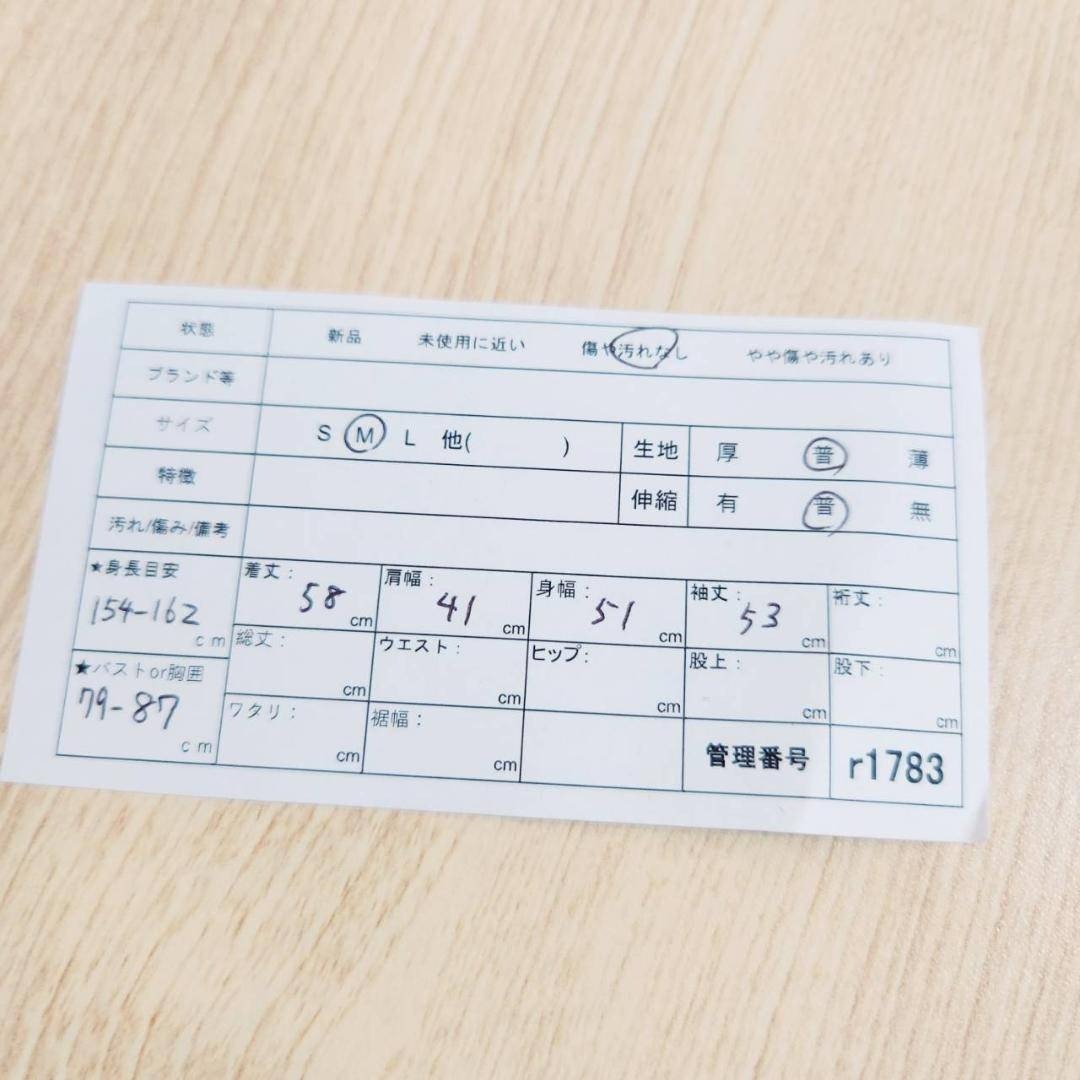 状態 新品 未使用に近い 傷や汚れなし やや傷や汚れあり
ブランド等
サイズ S M L 他( ) 生地 厚 普 薄
特徴 伸縮 有 普 無
汚れ/傷み/備考
★身長目安 着丈: 肩幅: 身幅: 袖丈: 裄丈:
154-162 cm 58 cm 41 cm 51 cm 53 cm cm
★バストor胸囲 総丈: ウエスト: ヒップ: 股上: 股下:
cm cm cm cm cm
79-87 cm ワタリ: 裾幅: 管理番号 r1783
cm cm